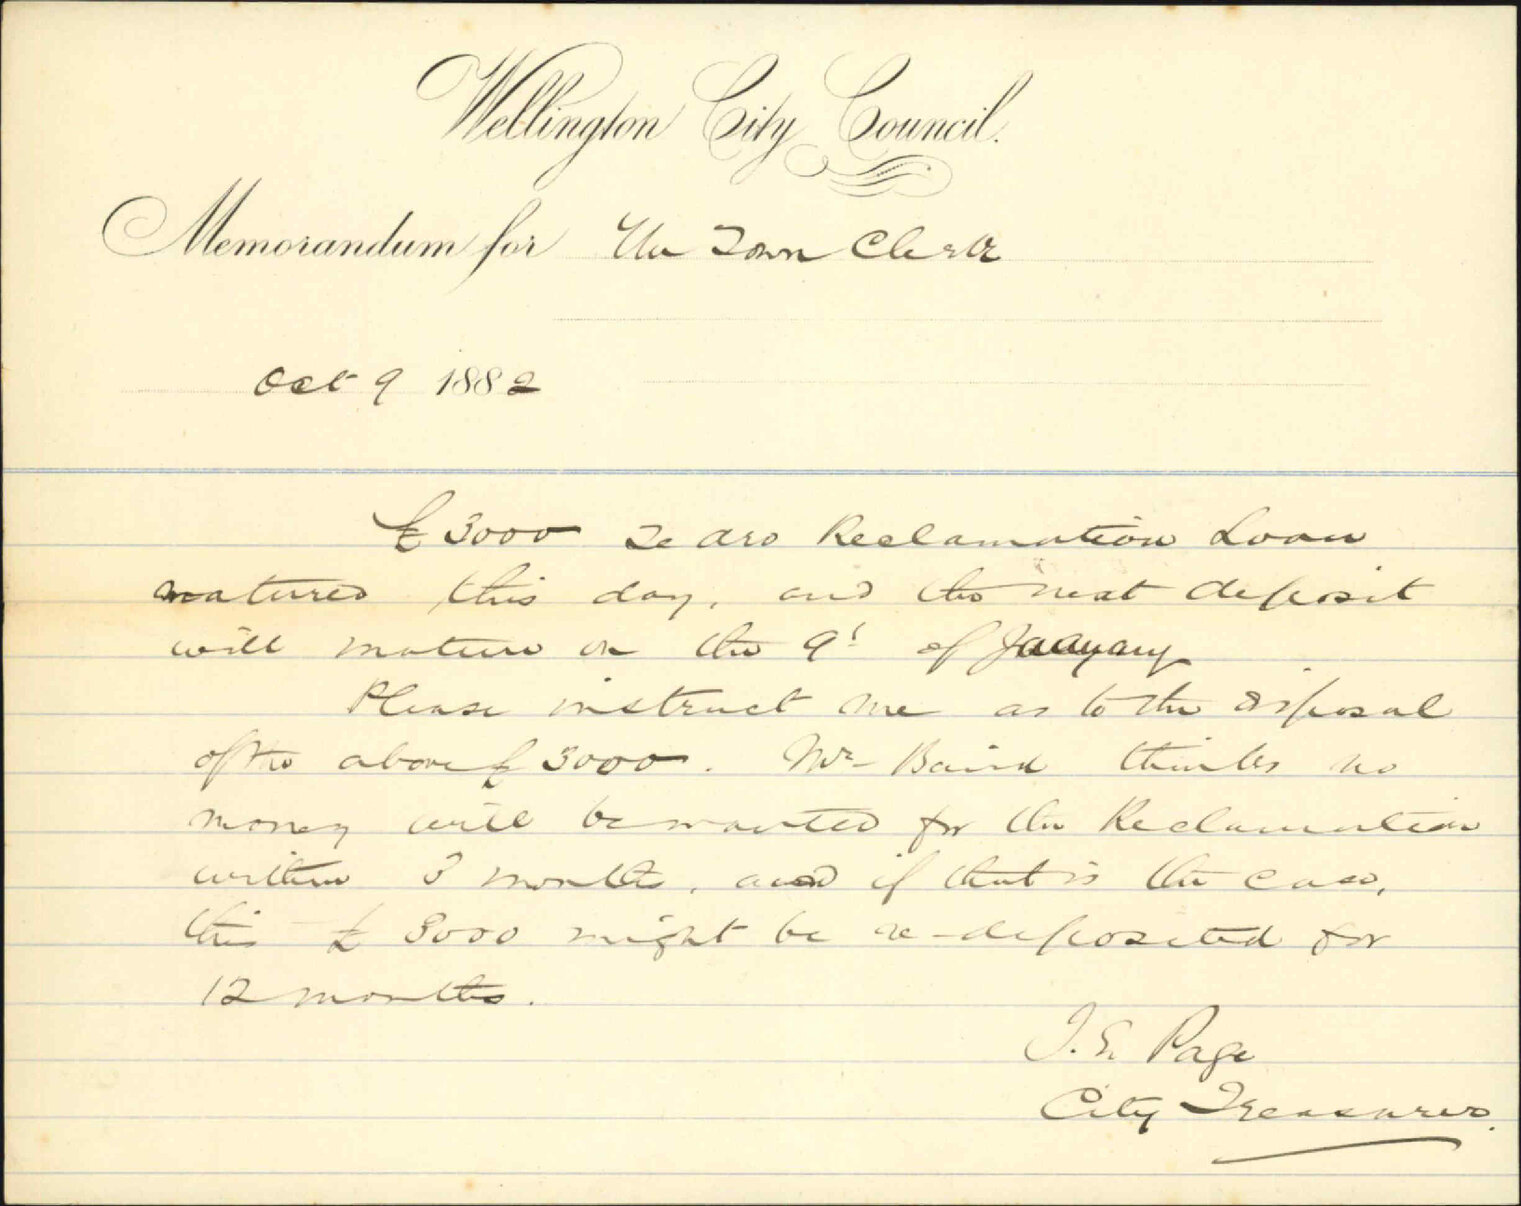 Wellington City Council.
Memorandum for The Town Clerk
Oct 9 1882
£3000 Te Aro Reclamation Loan
matured this day, and the next deposit
will mature on the 9t of January
Please instruct me as to the disposal
of the above £3000. Mr Baird thinks no
money will be wanted for the Reclamation
within 3 months, and if that is the case,
this £3000 might be re-deposited for
12 months.
J. E. Page
City Treasurer.